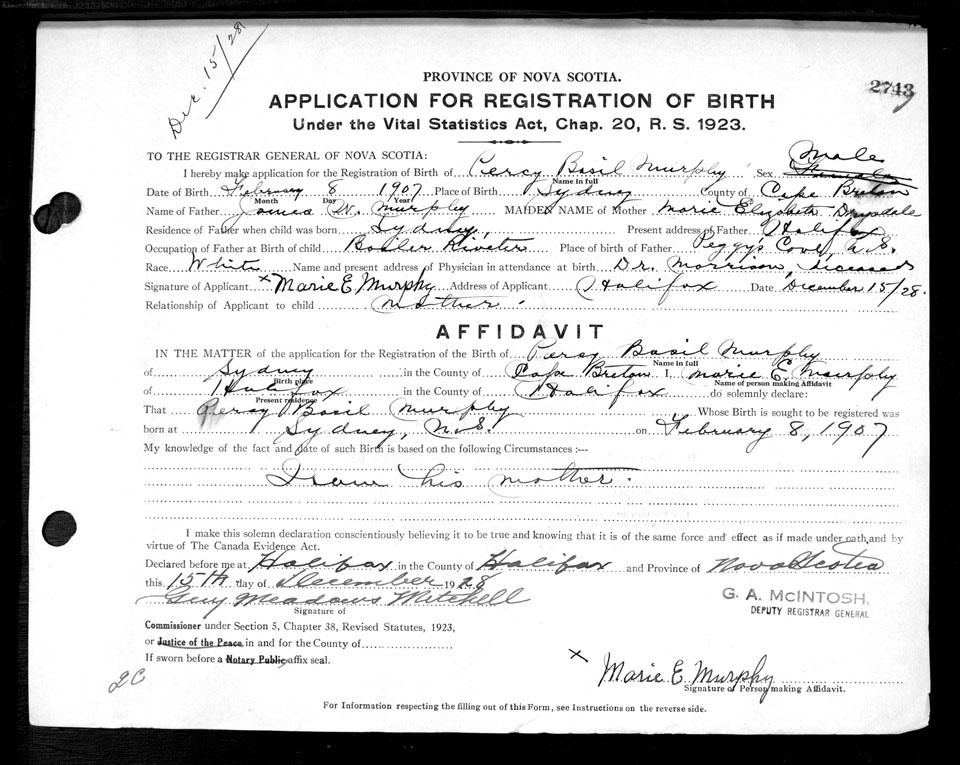 Dec. 15/28
2743
PROVINCE OF NOVA SCOTIA.
APPLICATION FOR REGISTRATION OF BIRTH
Under the Vital Statistics Act, Chap. 20, R. S. 1923.
TO THE REGISTRAR GENERAL OF NOVA SCOTIA:
Male
I hereby make application for the Registration of Birth of Percy Basil Murphy Sex Female
Name in full
Date of Birth February 8 1907 Place of Birth Sydney County of Cape Breton
Month Day Year
Name of Father James W. Murphy MAIDEN NAME of Mother Marie Elizabeth Drysdale
Residence of Father when child was born Sydney, Present address of Father Halifax
Occupation of Father at Birth of child Boiler Riveter Place of birth of Father Peggy's Cove, N.S.
Race White Name and present address of Physician in attendance at birth Dr. Morrison, diseased
Signature of Applicant x Marie E. Murphy Address of Applicant Halifax Date December 15/28.
Relationship of Applicant to child mother.
AFFIDAVIT
IN THE MATTER of the application for the Registration of the Birth of Percy Basil Murphy
Name in full
of Sydney in the County of Cape Breton I, Marie E. Murphy
Birth place Name of person making Affidavit
of Halifax in the County of Halifax do solemnly declare:
Present residence
That Percy Basil Murphy Whose Birth is sought to be registered was
born at Sydney, N.S. on February 8, 1907
My knowledge of the fact and date of such Birth is based on the following Circumstances :—
I am his mother.
I make this solemn declaration conscientiously believing it to be true and knowing that it is of the same force and effect as if made under oath and by
virtue of The Canada Evidence Act.
Declared before me at Halifax in the County of Halifax and Province of Nova Scotia
this 15th day of December 1928
Guy Meadows Mitchell
Signature of
G. A. McINTOSH,
DEPUTY REGISTRAR GENERAL
Commissioner under Section 5, Chapter 38, Revised Statutes, 1923,
or Justice of the Peace in and for the County of
If sworn before a Notary Public, affix seal.
x Marie E. Murphy
Signature of Person making Affidavit.
2C
For Information respecting the filling out of this Form, see Instructions on the reverse side.